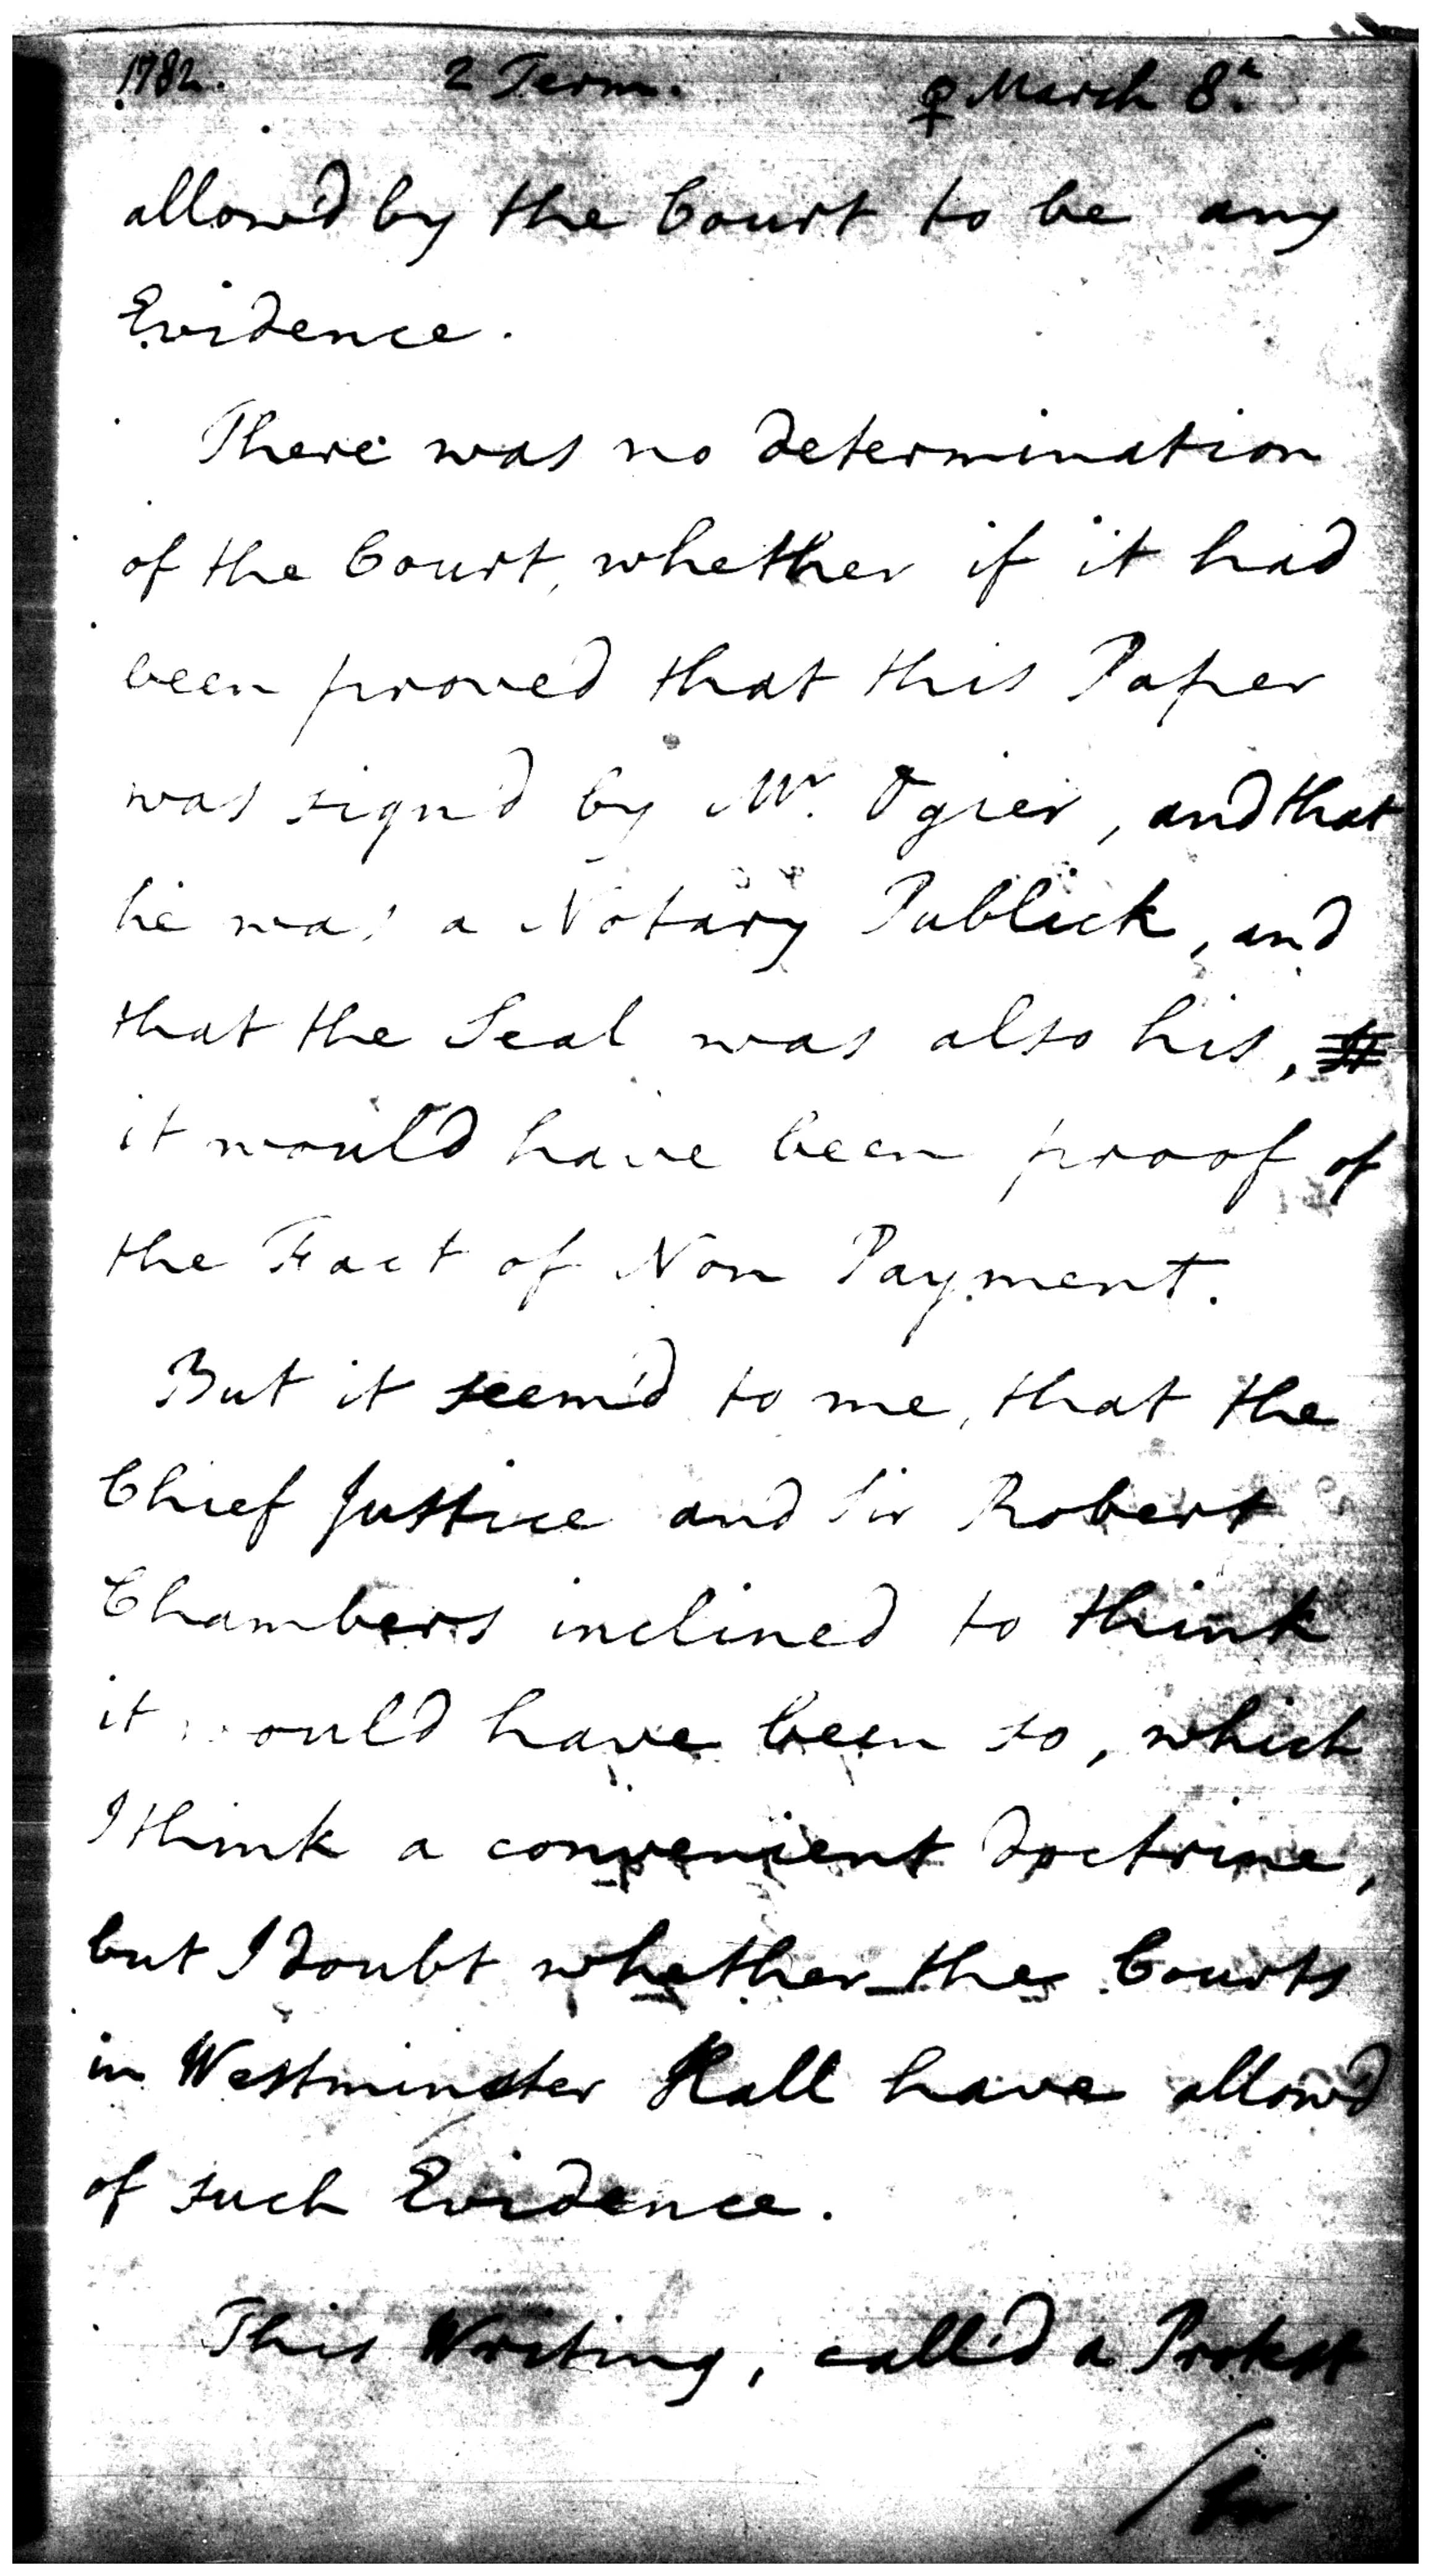 1782. 2 Term. ♀ March 8th.
allow'd by the Court to be any
Evidence.
There was no determination
of the Court, whether if it had
been proved that this Paper
was sign'd by Mr. Ogier, and that
he was a Notary Publick, and
that the Seal was also his,
it would have been proof of
the Fact of Non Payment.
But it seem'd to me, that the
Chief Justice and Sir Robert
Chambers inclined to think
it would have been so, which
I think a convenient doctrine,
but I doubt whether the Courts
in Westminster Hall have allow'd
of such Evidence.
This Writing, call'd a Protest